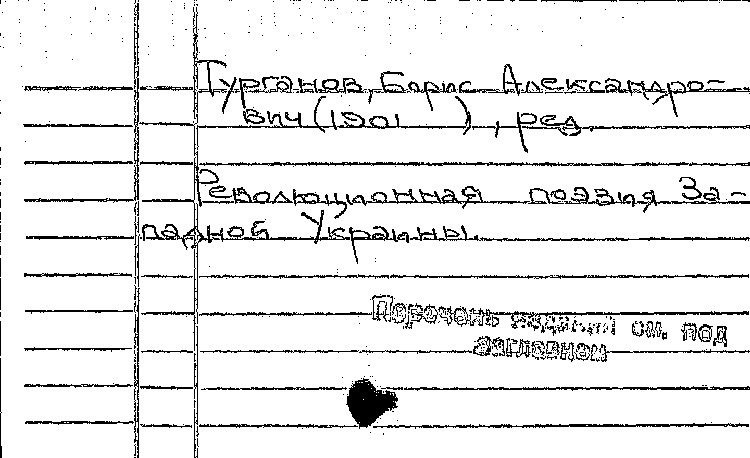 Турганов, Борис Александро-
вич (1901      ), ред.
Революционная поэзия За-
падной Украины.
Перечень изданий см. под
заглавием